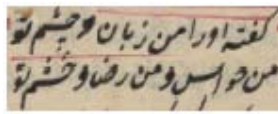 گفته او را من زبان و چشم تو
من حواس و من رضا و خشم تو